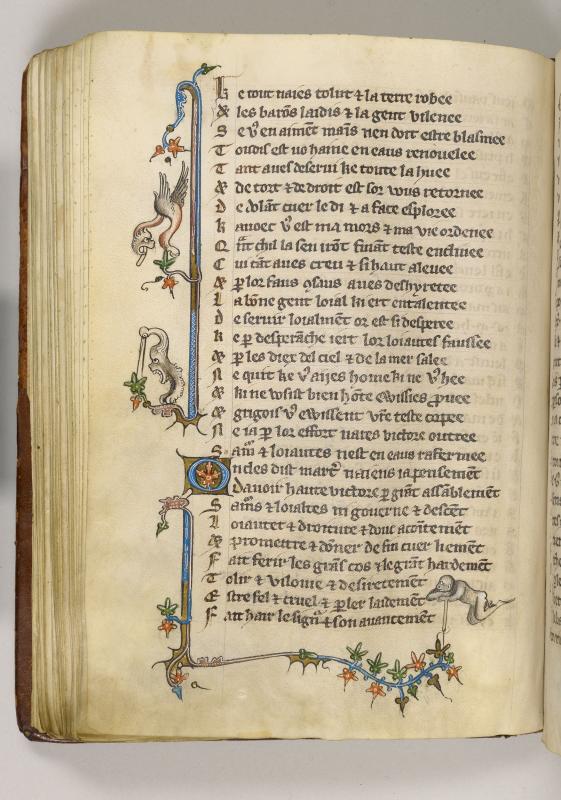 Ke tout naies tolut ⁊ la terre robee
& les barõs laidis ⁊ la gent vilenee
Se vͦ en aimẽt mains rien doit estre blasmee
Toudis est uo haine en eaus renouelee
Tant aues deserui ke toute la huee
& de tort ⁊ de droit est sor vous retornee
De cuer le di ⁊ a face esploree
Kauoec vͦ est ma mors ⁊ ma vie ordenee
Qnt chil la sen võt finãt teste enclinee
Cui tãt aues creu ⁊ si haut aleuee
& ꝑ lor faus ꝯsaus aues deshyretee
La bõne gent loial ki ert entalentee
De seruir loialmẽt or est si desperee
Ke ꝑ desperãche iert lor loiautes faussee
& ꝑ les diex del ciel ⁊ de la mer salee
Ne quit ke vͦ aijes home ki ne vͦ hee
& ki ne vosist bien hõte ewissies ꝓuee
& grigois vͦ ewissent vrẽ teste copee
Ne ia ꝑ lor effort naies victore outree
Samͦs ⁊ loiautes nest en eaus rafermee
Oncles dist naiens ia pensement
Dauoir haute victore ꝑ grãt assãblemẽt
Samͦs ⁊ loialtes ni gouerne ⁊ descẽt
Loiautet ⁊ droiture ⁊ douc acõtemẽt
& promettre ⁊ dõner de fin cuer liemẽt
Fait ferir les grãs cos ⁊ le grãt hardemẽt
Tolir ⁊ vilonie ⁊ desiretemẽt
Estre fel ⁊ cruel ⁊ ꝑler laidemẽt
Fait hair le signͬ ⁊ son auancemẽt
a